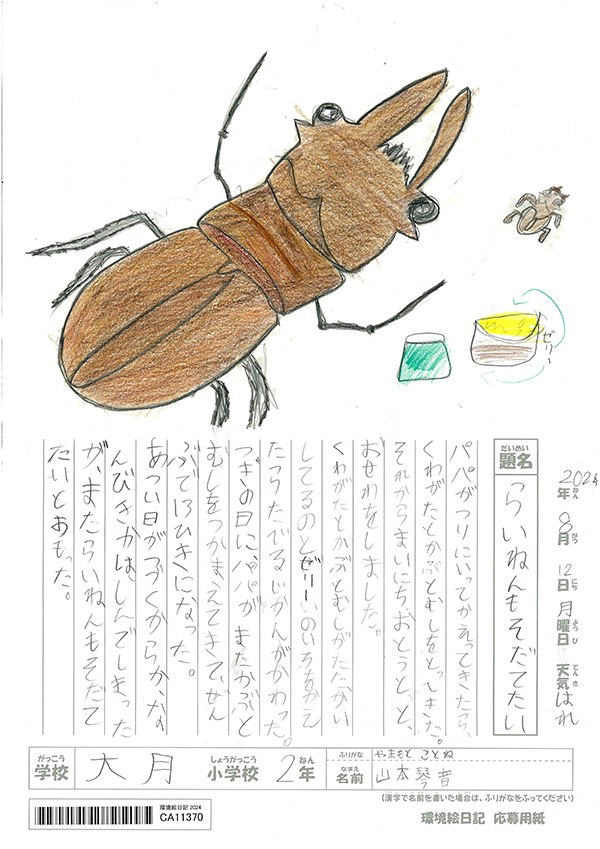 ゼリー
2024年 8月 12日 月曜日 天気はれ
ねん がつ にち ようび てんき
だいめい
題名
らいねんもそだてたい
パパがつりにいってかえってきたら、
くわがたとかぶとむしをとってきた。
それからまいにちおとうとと、
おせわをしました。
くわがたとかぶとむしがたたかい
してるのとゼリーいの
たらたべるじかんがかわった。
つぎの日に、パパがまたかぶと
むしをつかまえてきて、ぜん
ぶで13ひきになった。
あつい日がつづくからか、な
んびきかは、しんでしまった
が、またらいねんもそだて
たいとおもった。
がっこう
学校
大月
しょうがっこう
小学校
2年
ねん
ふりがな
やまもと ことね
なまえ
名前
山本琴音
(漢字で名前を書いた場合は、ふりがなをふってください)
環境絵日記 2024
CA11370
環境絵日記 応募用紙